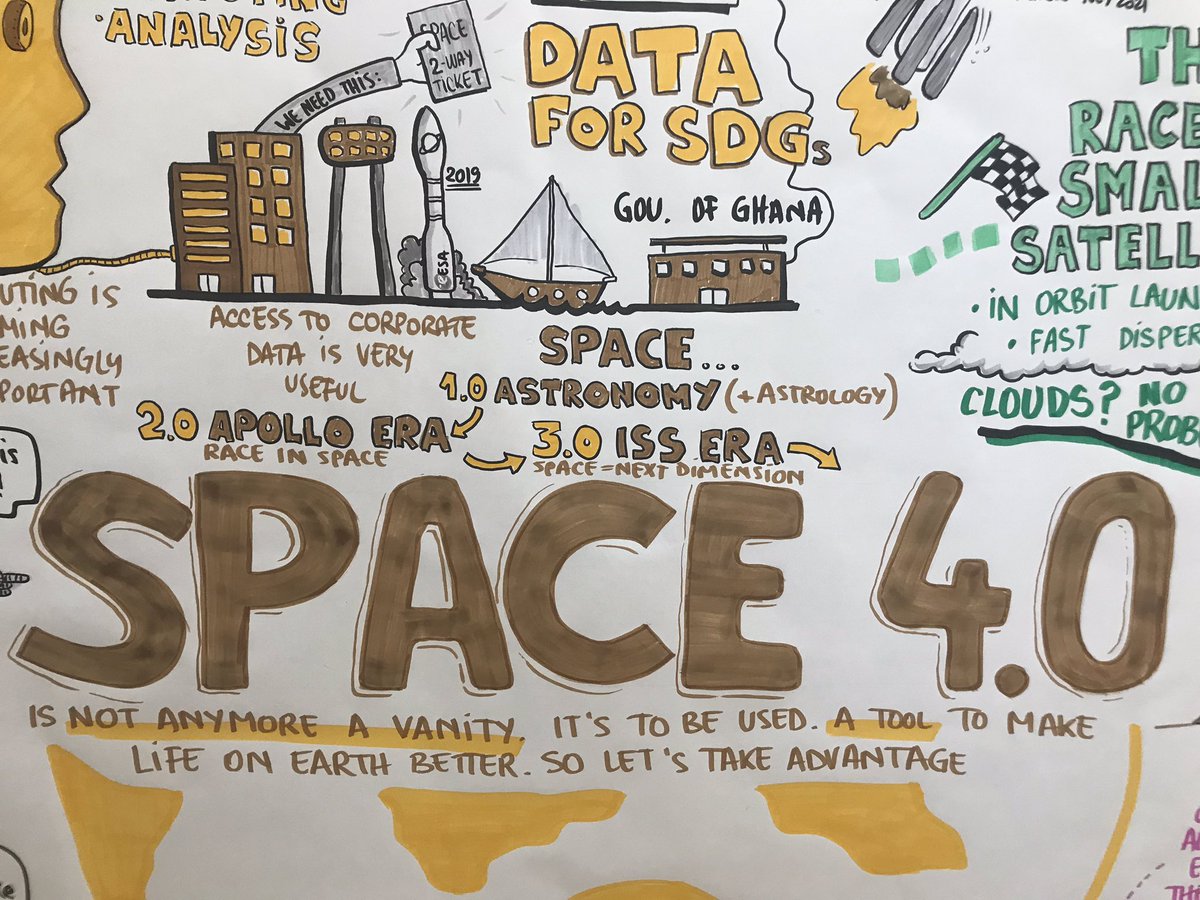 ANALYSIS
WE NEED THIS:
SPACE
2-WAY
TICKET
DATA
FOR SDGs
2019
ESA
GOV. OF GHANA
NOV 2021
RACE
• IN ORBIT
• FAST
CLOUDS? NO
IS
ACCESS TO CORPORATE
DATA IS VERY
USEFUL
SPACE...
1.0 ASTRONOMY (+ASTROLOGY)
2.0 APOLLO ERA
RACE IN SPACE
3.0 ISS ERA
SPACE=NEXT DIMENSION
SPACE 4.0
IS NOT ANYMORE A VANITY. IT'S TO BE USED. A TOOL TO MAKE
LIFE ON EARTH BETTER. SO LET'S TAKE ADVANTAGE